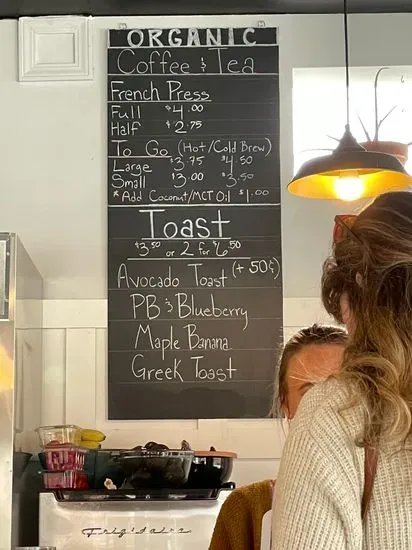 ORGANIC
Coffee & Tea
French Press
Full $4.00
Half $2.75
To Go (Hot/Cold Brew)
Large $3.75 $4.50
Small $3.00 $3.50
* Add Coconut/MCT Oil $1.00
Toast
$3.50 or 2 for $6.50
Avocado Toast (+ 50¢)
PB & Blueberry
Maple Banana
Greek Toast
Frigidaire